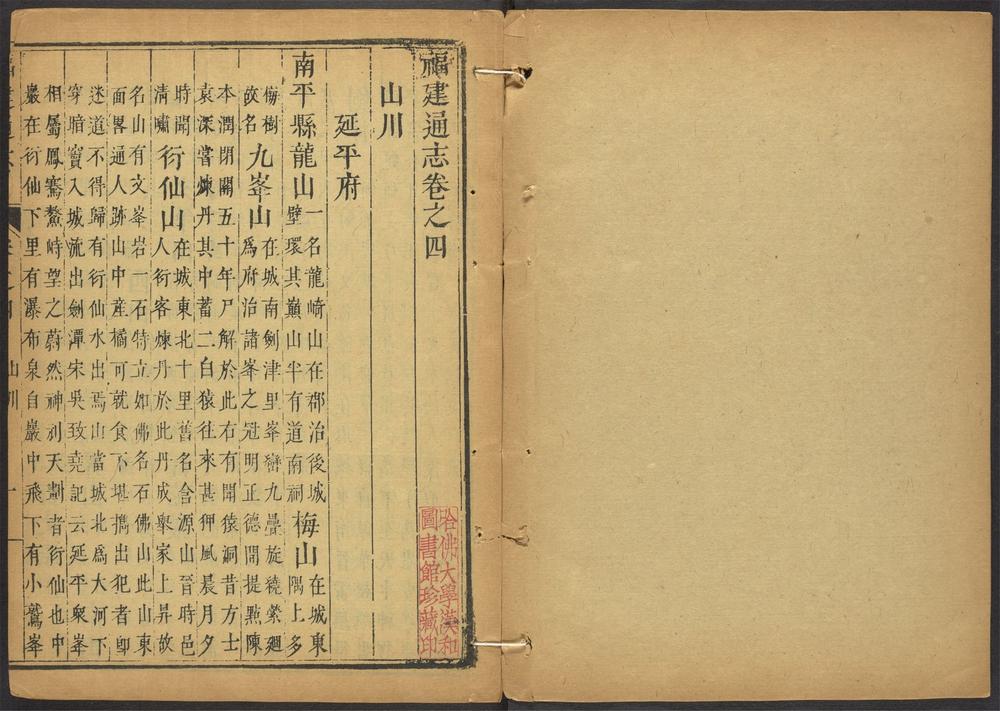 福建通志卷之四
山川
延平府
南平縣龍山一名龍崎山在郡治後城壁環其巔山半有道南祠梅山在城東隅上多
梅樹故名九峯山在城南劍津里峯巒九疊旋繞縈廻爲府治諸峯之冠明正德間提點陳
本潤閉關五十年尸解於此右有開猿洞昔方士
袁深嘗煉丹其中蓄二白猿往來甚狎風晨月夕
時聞清嘯衍仙山在城東北十里舊名含源山晉時邑人衍客煉丹於此丹成舉家上昇故
名山有文峯岩一石特立如佛名石佛山此山東
面畧通人跡山中産橘可就食不堪擕出犯者卽
迷道不得歸有衍仙水出焉山當城北爲大河下
穿暗竇入城流出劍潭宋吳致堯記云延平衆峯
相屬鳳騫鰲峙望之蔚然神刓天劃者衍仙也中
巖在衍仙下里有瀑布泉自巖中飛下有小鷲峯
哈佛大學漢和
圖書館珍藏印